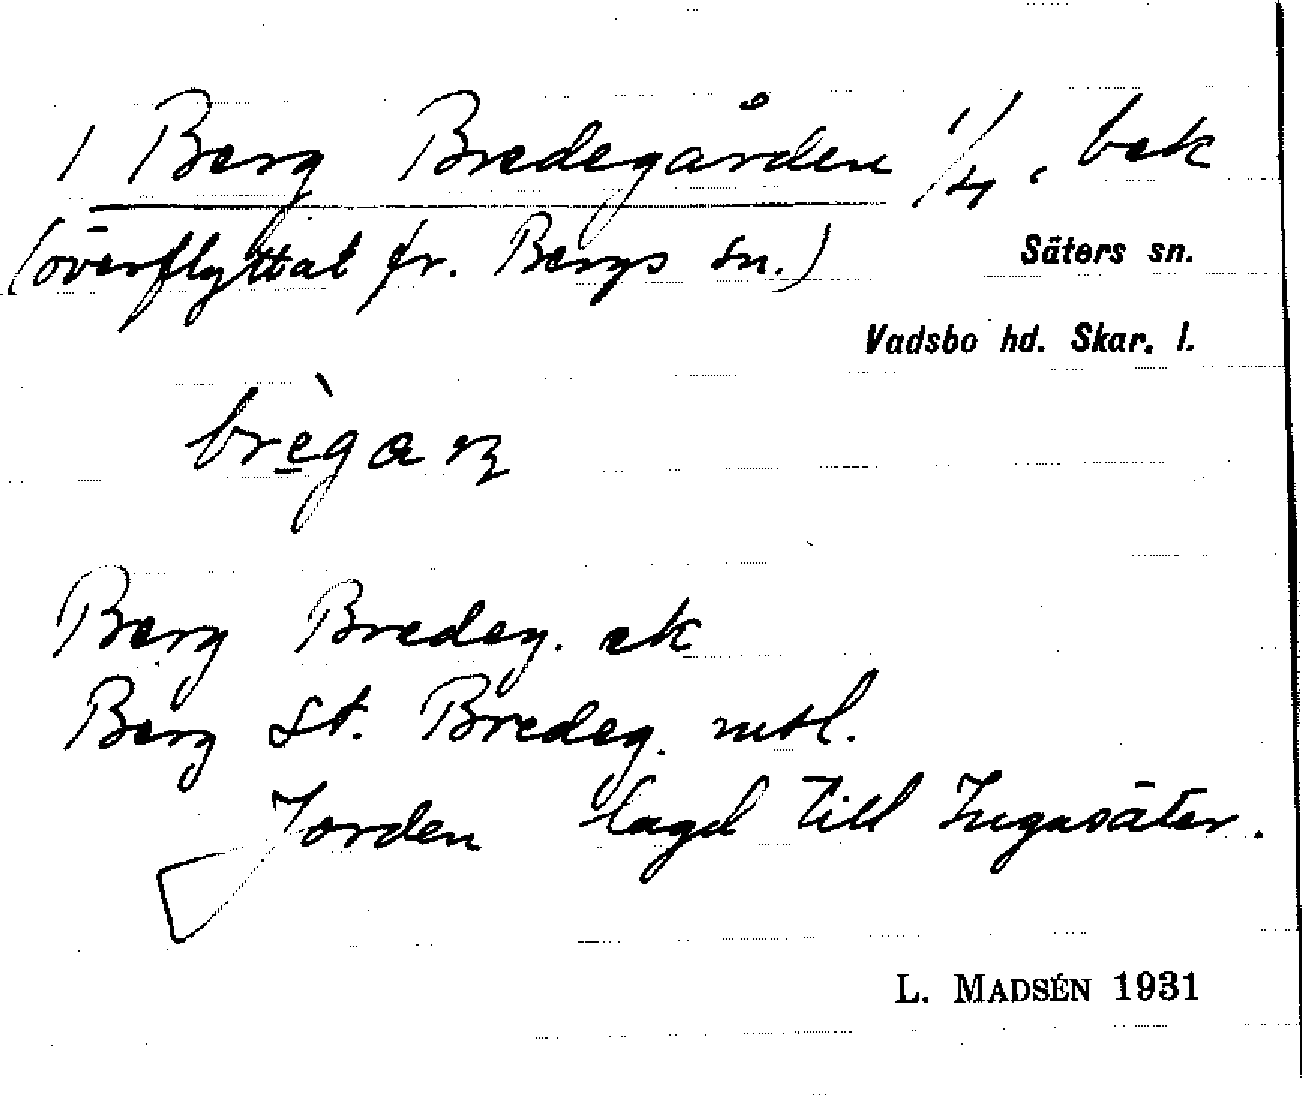 1 Berg Bredegården 1/4, bek
(överflyttat fr. Bergs sn.)
Säters sn.
Vadsbo hd. Skar. l.
brègaɳ
Berg Bredeg. ek
Berg St. Bredeg. mtl.
Jorden lagd till Ingasäter.
L. MADSÉN 1931